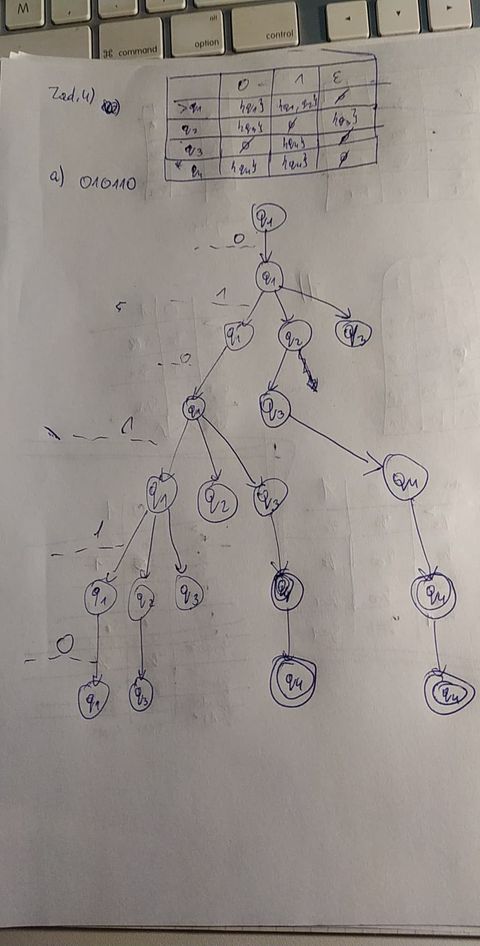 M
⌘ command
alt
option
control
Zad. 4)
0 1 ε
>q1 {q1} {q1, q2} ∅
q2 {q3} ∅ {q3}
q3 ∅ {q4} ∅
* q4 {q4} {q4} ∅
a) 010110
q1
0
q1
1
q1 q2 q3
0
q1 q3
1
q1 q2 q3 q4
1
q1 q2 q3 q4
0
q1 q3 q4 q4